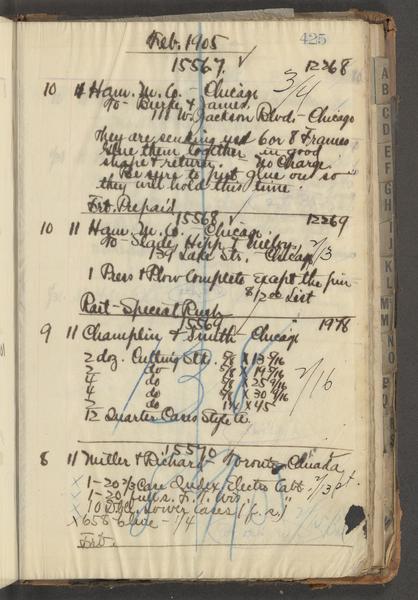 Feb. 1905
425
15567. ✓ 12268
10 11 Ham. M. Co. - Chicago 3/4
To - Burke & James.
111 W. Jackson Blvd - Chicago
They are sending us 6 or 8 Frames
Glue them together in good
shape & return. No Charge.
Be sure to just glue em so
they will hold this time.
Frt. Prepaid
15568 ✓ 12269
10 11 Ham. M. Co. - Chicago.
To - Slade, Hipp &
139 Lake Str. - Chicago 2/3
1 Press & Plow Complete Except the
$12.00 List
Rail - Special Rush
15569 1978
9 11 Champlin & Smith - Chicago
2 doz. Cutting Stk. 5/8 X 13
2 do 5/8 X 19
4 do 5/8 X 25 9/16
4 do 5/8 X 30 9/16
2 do 5/8 X 45
12 Quarter Cases Style
2/16
15570
8 11 Miller & Richard - Toronto, Canada
X 1 - 20 2/3 Case Index Electro Cabt. 2/3
X 1 - 20 full s.
X 10 Lower Cases
X 658 - 1/4
Frt.
A
B
C
D
E
F
G
H
I
J
K
L
M
M
N
O
P